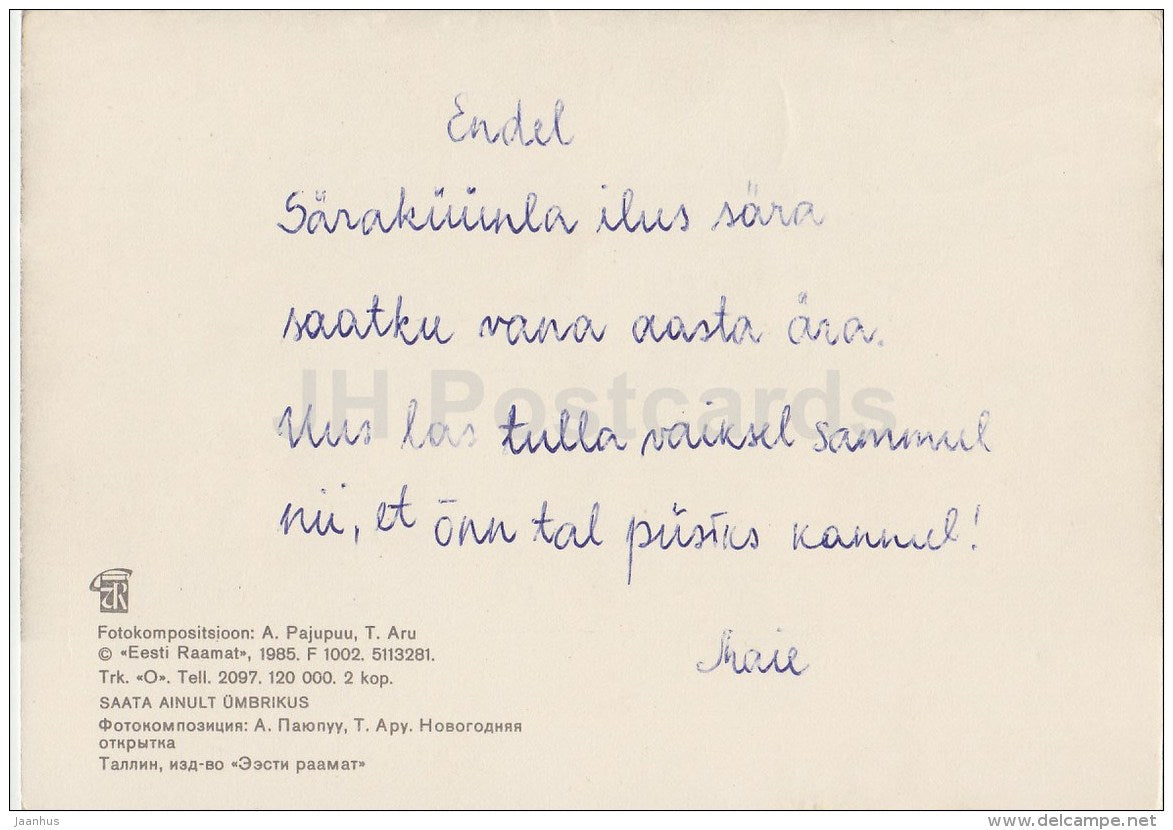 Endel
Säraküünla ilus sära
saatku vana aasta ära.
JH Postcards
Uus las tulla vaiksel sammul
nii, et õnn tal püsiks kannul!
Maie
Fotokompositsioon: A. Pajupuu, T. Aru
© «Eesti Raamat», 1985. F 1002. 5113281.
Trk. «O». Tell. 2097. 120 000. 2 kop.
SAATA AINULT ÜMBRIKUS
Фотокомпозиция: А. Паюпуу, Т. Ару. Новогодняя
открытка
Таллин, изд-во «Ээсти раамат»
Jaanhus
www.delcampe.net